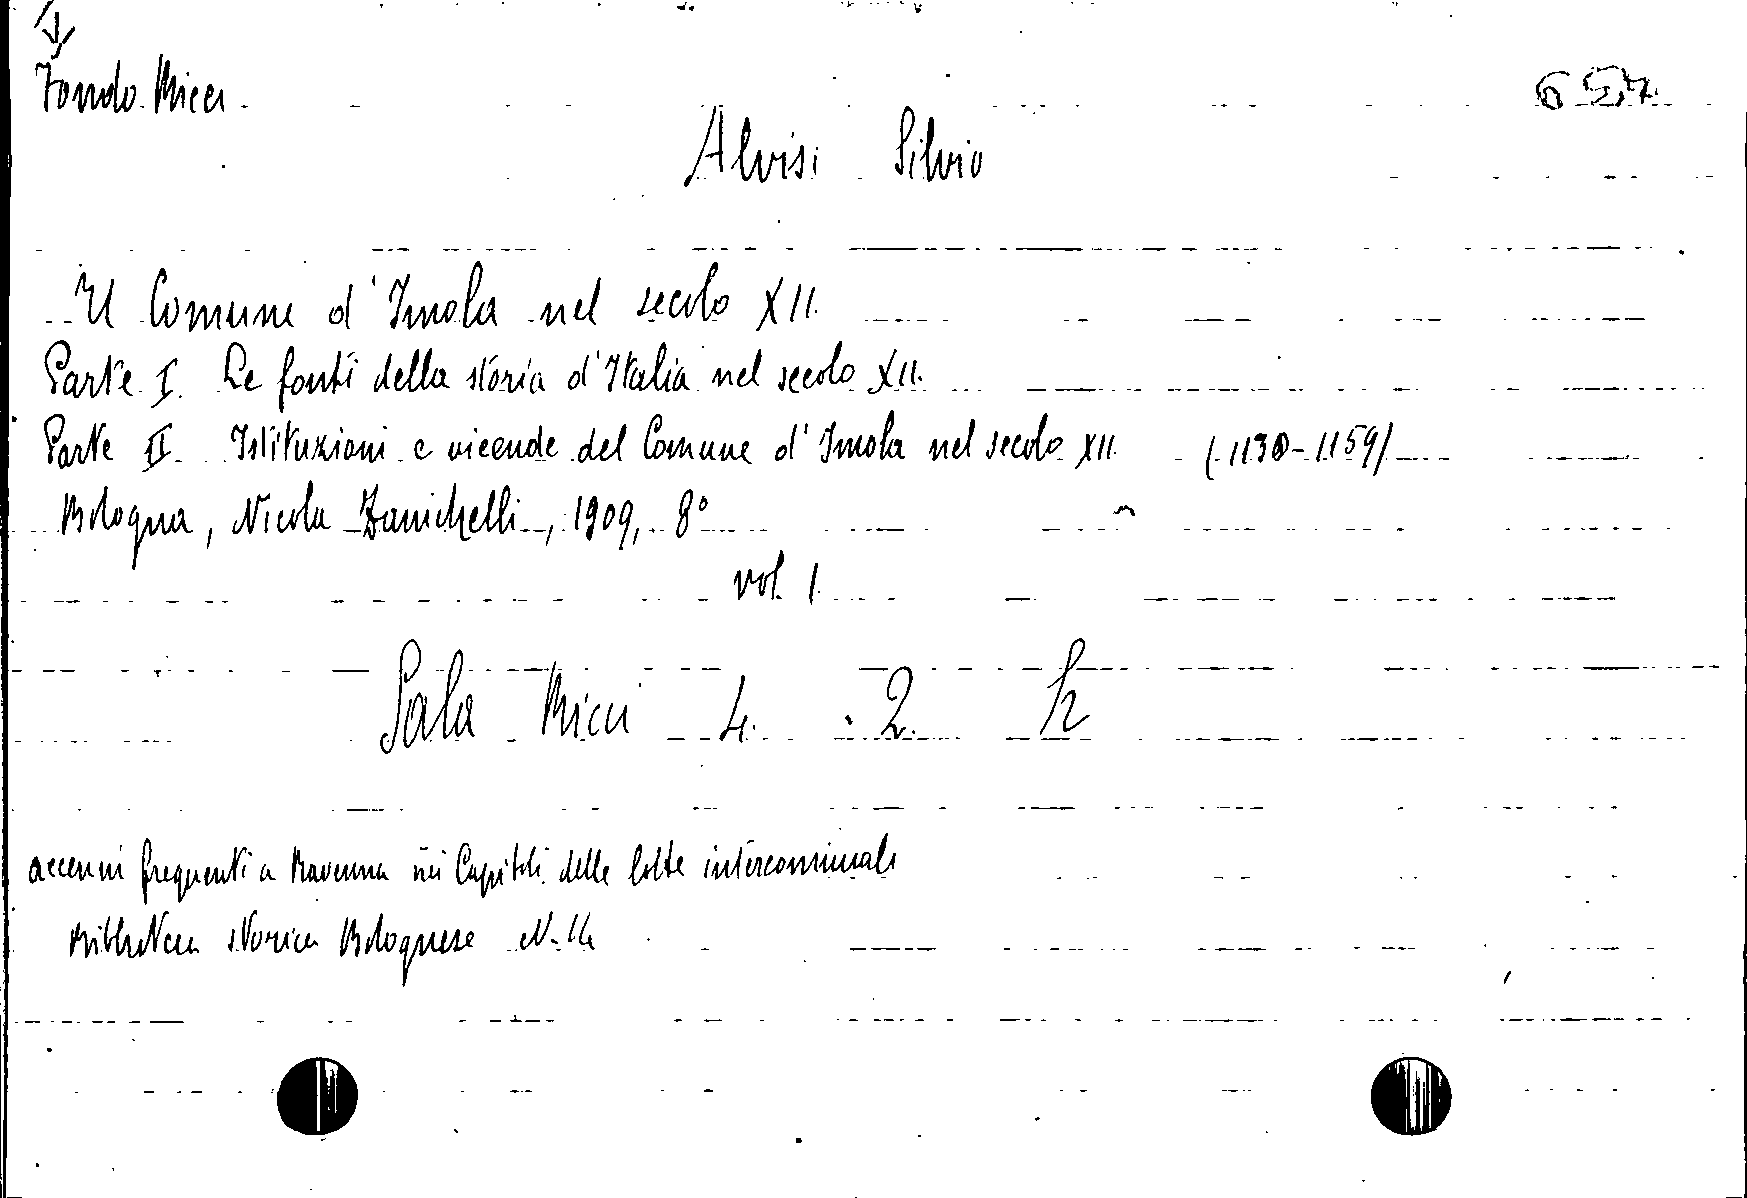 Fondo Ricci
657
Alvisi Silvio
Il Comune d'Imola nel secolo XII.
Parte I. Le fonti della storia d'Italia nel secolo XII.
Parte II. Istituzioni e vicende del Comune d'Imola nel secolo XII (1130-1159)
Bologna, Nicola Zanichelli, 1909, 8°
vol. 1
Sala Ricci 4. 2. h
accenni frequenti a Ravenna nei Capitoli delle lotte intercomunali
Biblioteca storica Bolognese N. 14